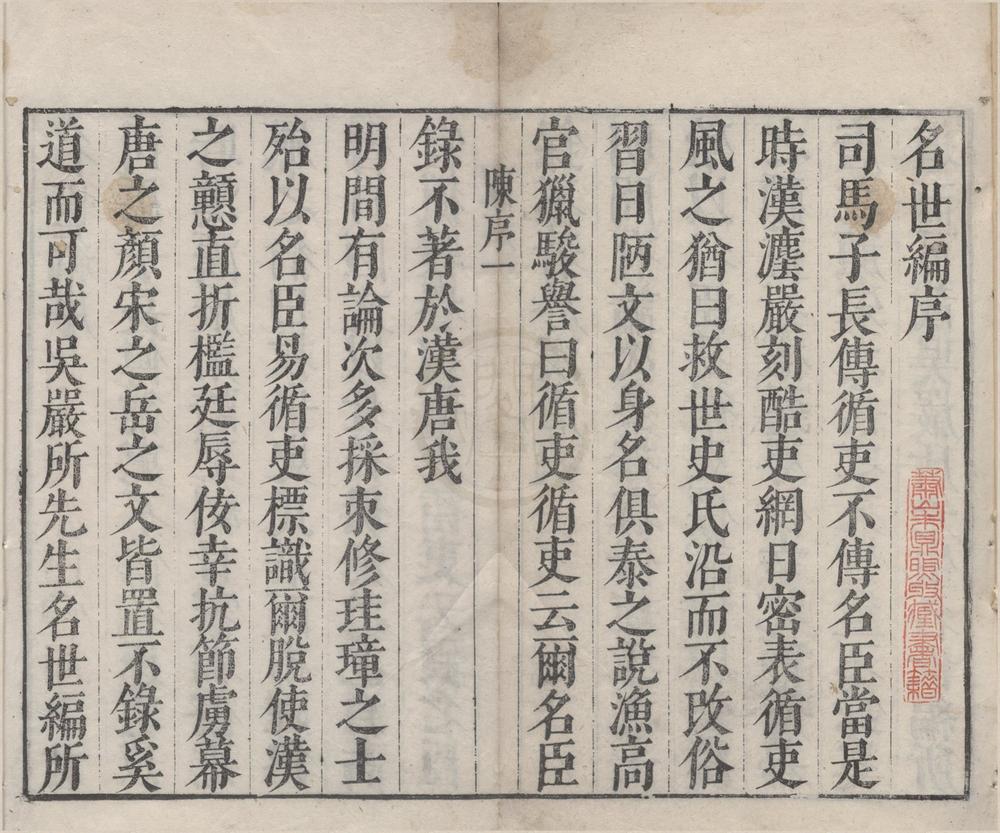 名世編序
司馬子長傳循吏不傳名臣當是
時漢瀍嚴刻酷吏網日密表循吏
風之猶曰救世史氏沿而不改俗
習日陋文以身名俱泰之說漁高
官獵駿譽曰循吏循吏云爾名臣
陳序一
錄不著於漢唐我
明間有論次多採束修珪璋之士
殆以名臣易循吏標識爾脫使漢
之戇直折檻廷辱佞幸抗節虜幕
唐之顏宋之岳之文皆置不錄奚
道而可哉吳嚴所先生名世編所